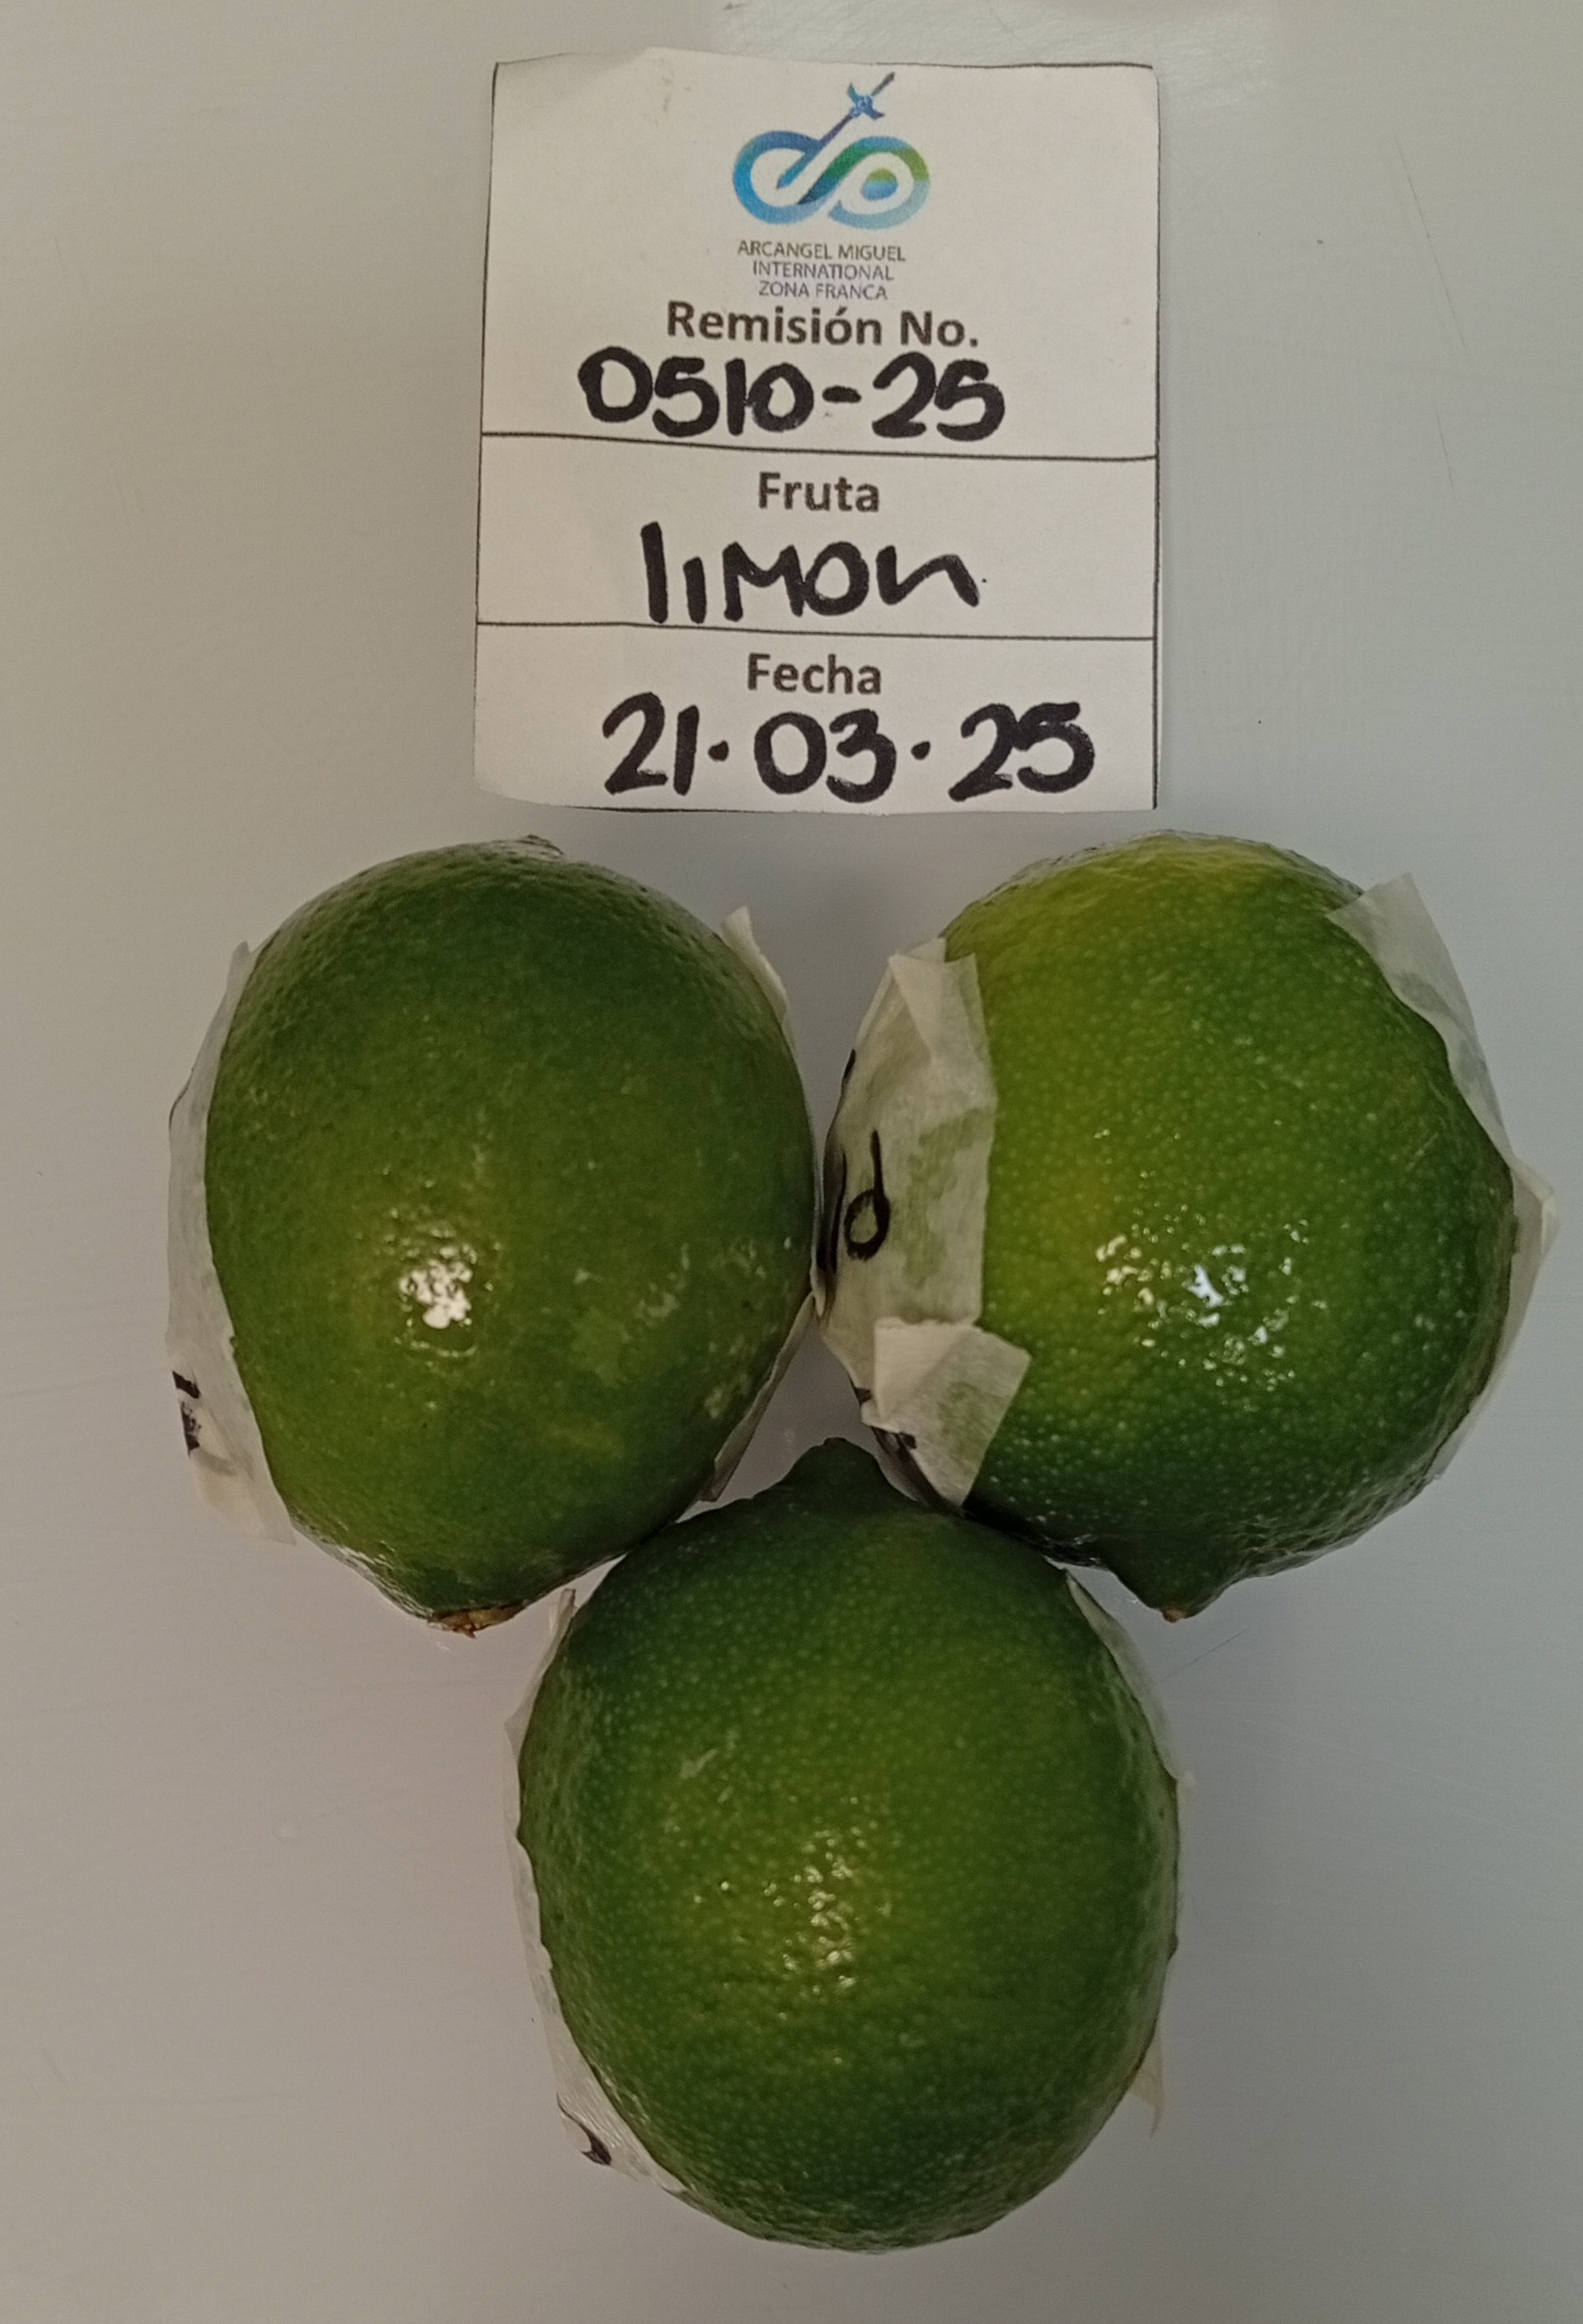 ARCANGEL MIGUEL
INTERNATIONAL
ZONA FRANCA
Remisión No.
0510-25
Fruta
limon
Fecha
21.03.25